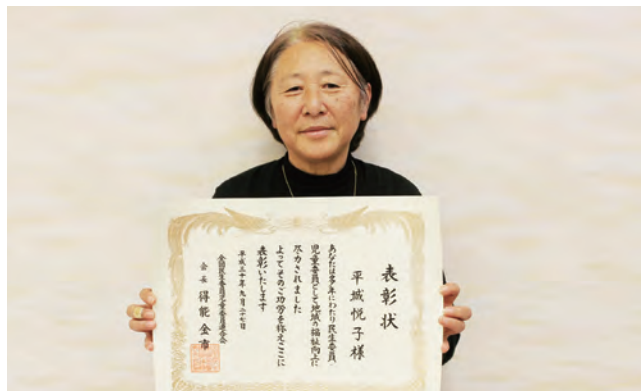 表彰状
平城悦子様
あなたは多年にわたり民生委員・
児童委員として地域の福祉向上に
尽力されました
よってそのご功労を称えここに
表彰いたします
平成三十年九月二十七日
全国民生委員児童委員連合会
会長 得能金市